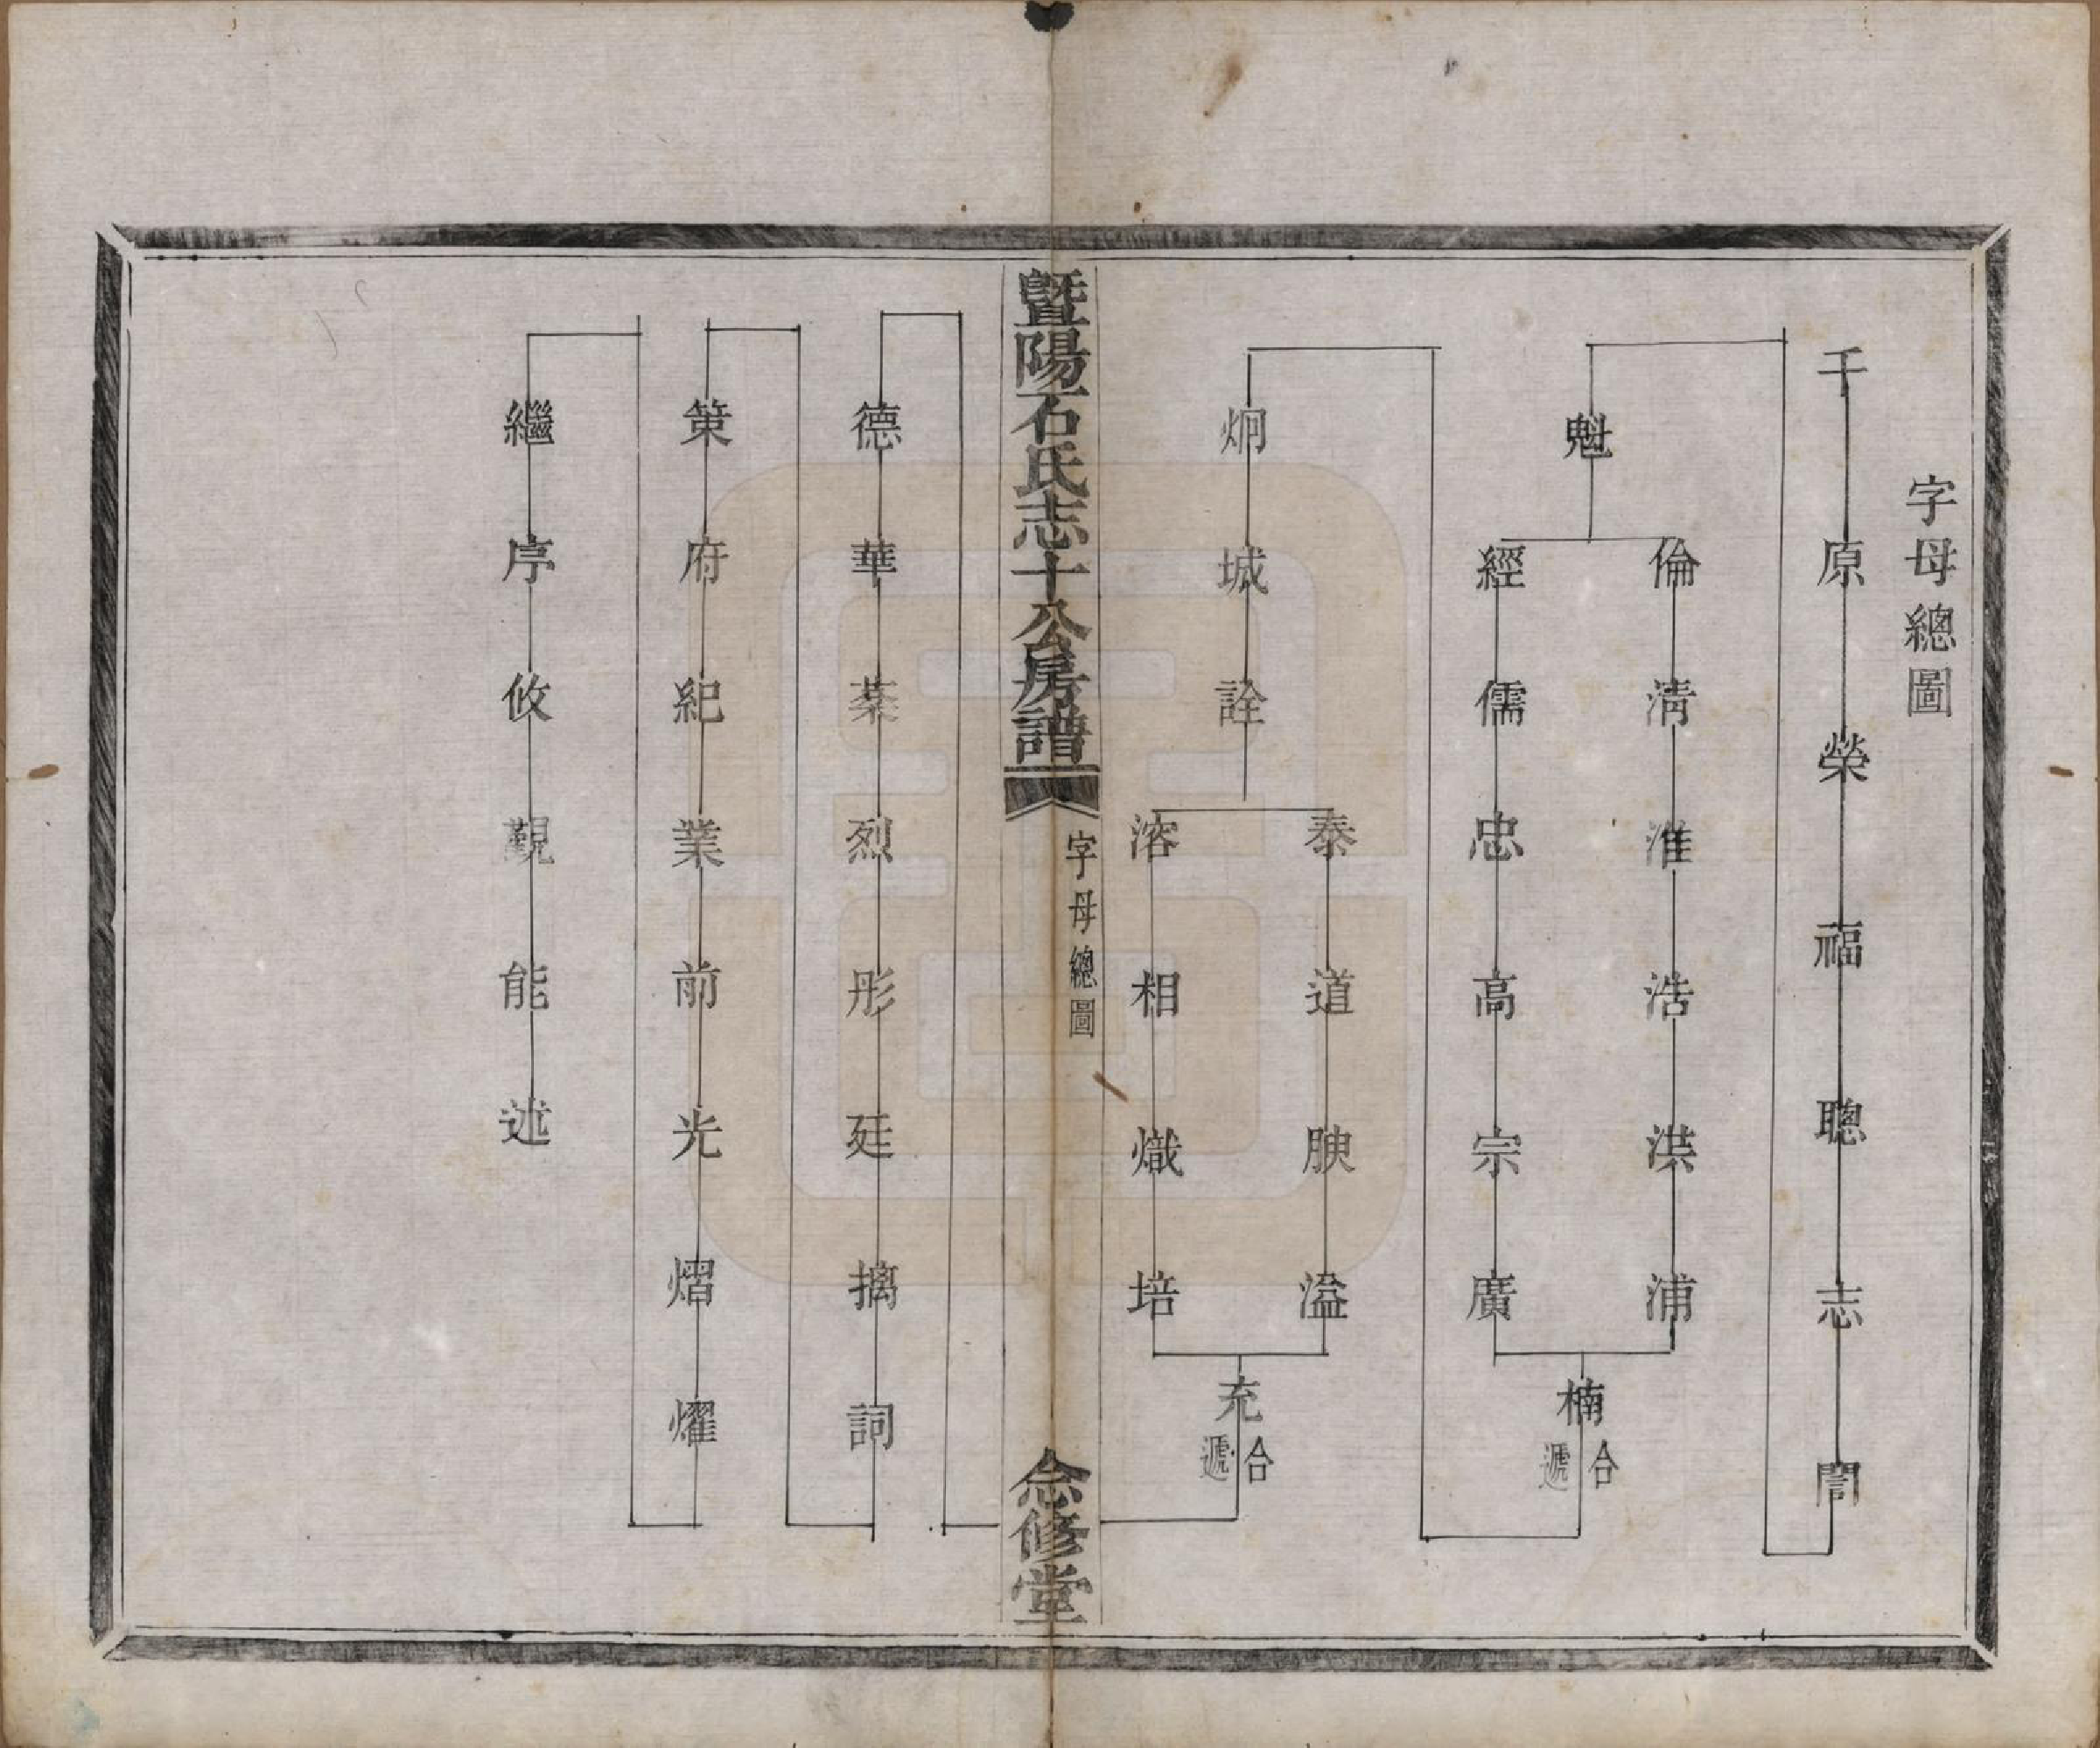 字母總圖
千原榮福聰志誾
魁
倫清淮浩洪浦
經儒忠高宗廣
楠
合遞
炯城詮
泰道腴溢
溶相熾培
充
合遞
暨陽石氏志十公房譜
字母總圖
念修堂
德華棻烈彤廷摛詞
策府紀業前光熠燿
繼序攸覲能述